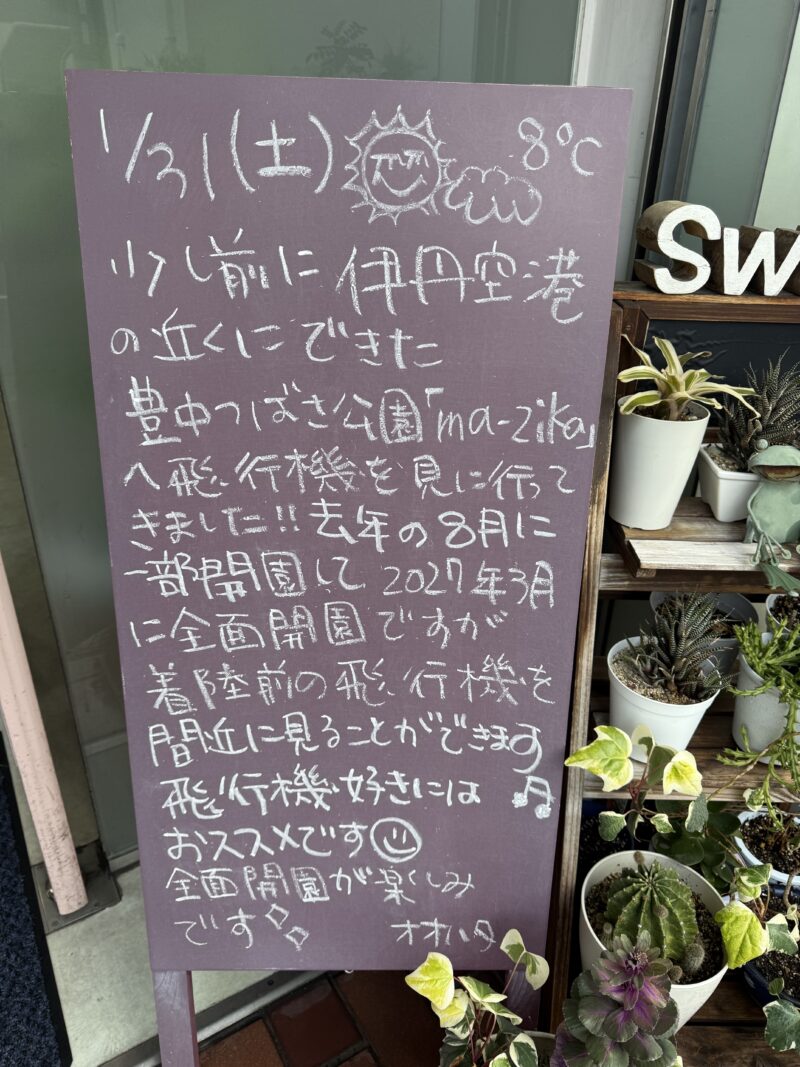 1/31(土) 8℃
少し前に伊丹空港
の近くにできた
豊中つばさ公園「ma-zika」
へ飛行機を見に行って
きました!!去年の8月に
一部開園して2027年3月
に全面開園ですが
着陸前の飛行機を
間近に見ることができます♫
飛行機好きには
おススメです
全面開園が楽しみ
です オオハタ
SW